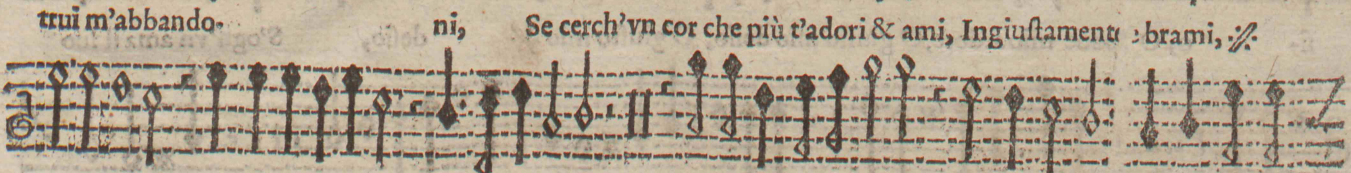 trui m'abbando- ni, Se cerch'vn cor che più t'adori & ami, Ingiustamente brami, ·//·